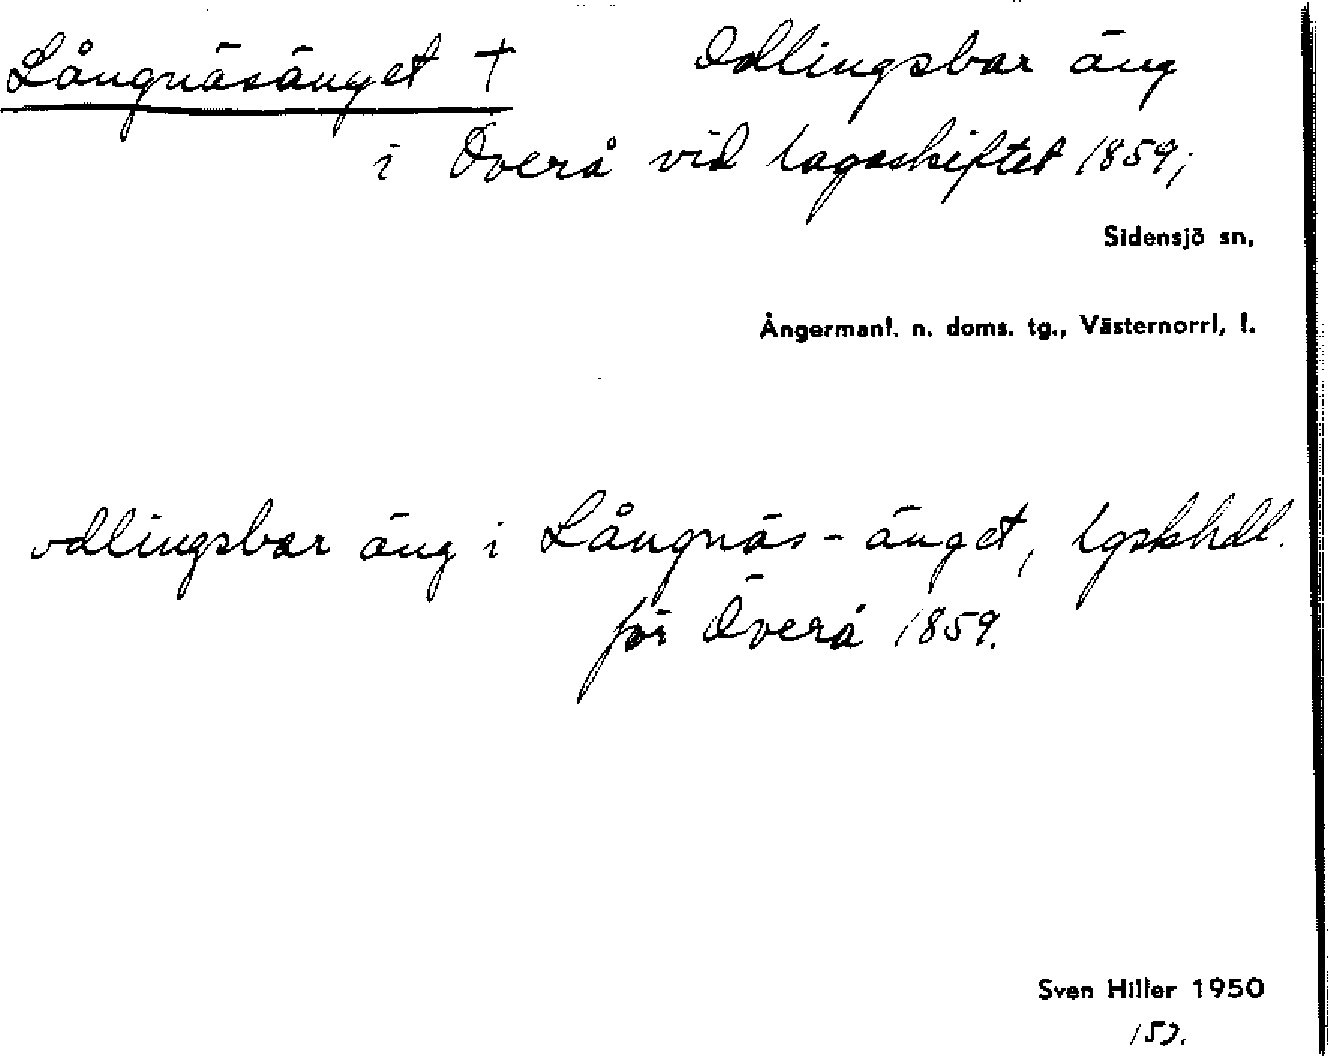 Långnäsänget † Odlingsbar äng
i Överå vid lagaskiftet 1859;
Sidensjö sn,
Ångermanl. n. doms. tg., Västernorrl, l.
odlingsbar äng i Långnäs-änget, lgskhdl.
för Överå 1859.
Sven Hiller 1950